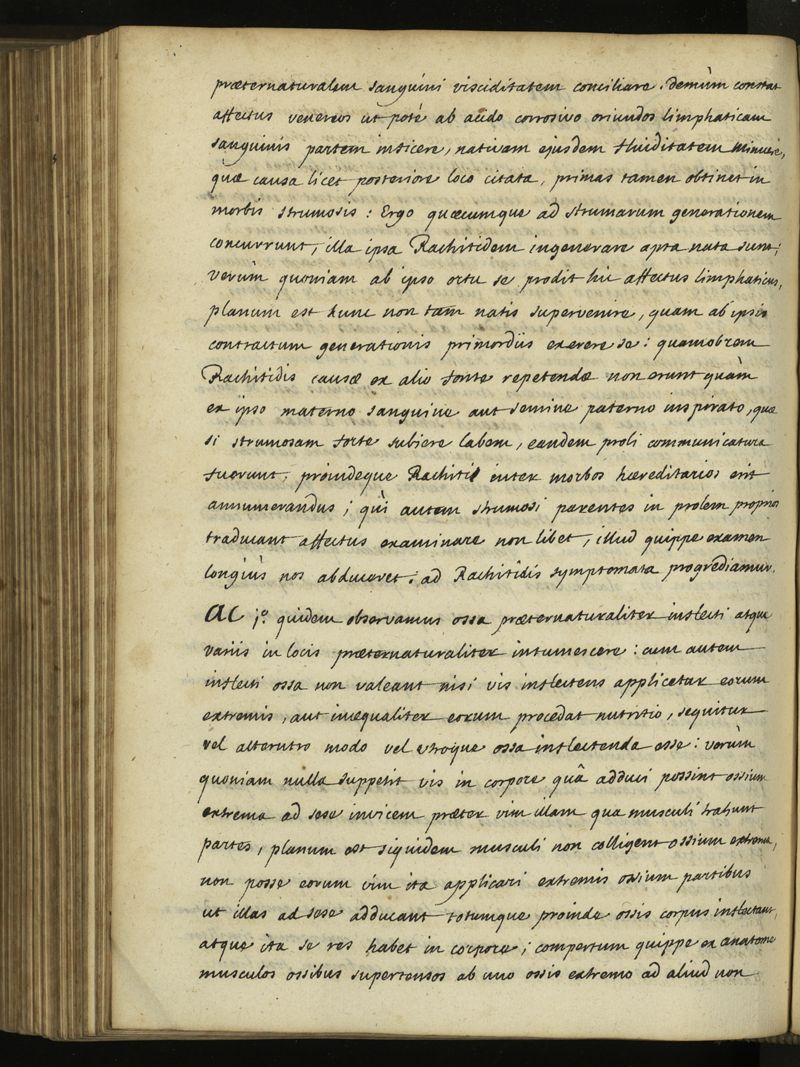 præternaturalem sanguini visciditatem conciliare. Demùm constat
affectus venereos ut poté ab acido corrosivo oriundos limphaticam
sanguinis partem inficere, nativam ejusdem fluiditatem minuere,
quæ causa licèt posteriore loco citata, primas tamen obtinet in
morbis strumosis: Ergo quæcumque ad strumarum generationem
concurrunt, illa ipsa Rachitidem ingenerare apta nata sunt;
verùm quoniam ab ipso ortu se prodit hic affectus limphaticus,
planum est hunc non tam natis supervenire, quam ab ipsis
contractum generationis primordiis exerere se: quamobrem
Rachitidis causæ ex alio fonte repetendæ non erunt quàm
ex ipso materno sanguine aut semine paterno inspirato, quæ
si strumosam forte subiere labem, eandem proli communicatura
fuerunt, proindeque Rachitis inter morbos hæreditarios erit
annumerandus; quì autem strumosi parentes in prolem proprios
traducant affectus examinare non libet, illud quippe examen
longiùs nos abduceret; ad Rachitidis symptomata progrediamur.
Ac 1º. quidem observamus ossa præternaturaliter inflecti atque
variis in locis præternaturaliter intumescere: cum autem
inflecti ossa non valeant nisi vis inflectens applicetur eorum
extremis, aut inæqualiter eorum procedat nutritio, sequitur
vel alterutro modo vel utroque ossa inflectenda esse: verùm
quoniam nulla suppetit vis in corpore quâ adduci possint ossium
extrema ad sese invicem præter vim illam qua musculi trahunt
partes, planum est siquidem musculi non colligent ossium extrema,
non posse eorum vim ita applicari extremis ossium partibus
ut illas ad sese adducant totumque proinde ossis corpus inflectant,
atque ita se res habet in corpore; compertum quippe ex anatome
musculos ossibus supertensos ab uno ossis extremo ad aliud non